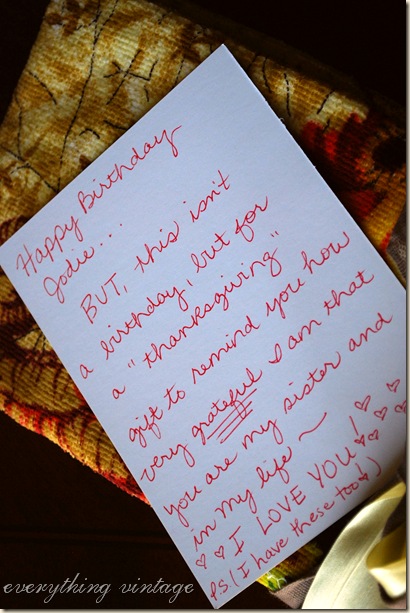 Happy Birthday
Jodie...
BUT, this isn't
a birthday, but for
a "thanksgiving"
gift to remind you how
very grateful I am that
you are my sister and
in my life ~
♡ ♡ I LOVE YOU! ♡ ♡ ♡ ♡ ♡ ♡
ps (I have these too♡)
everything vintage